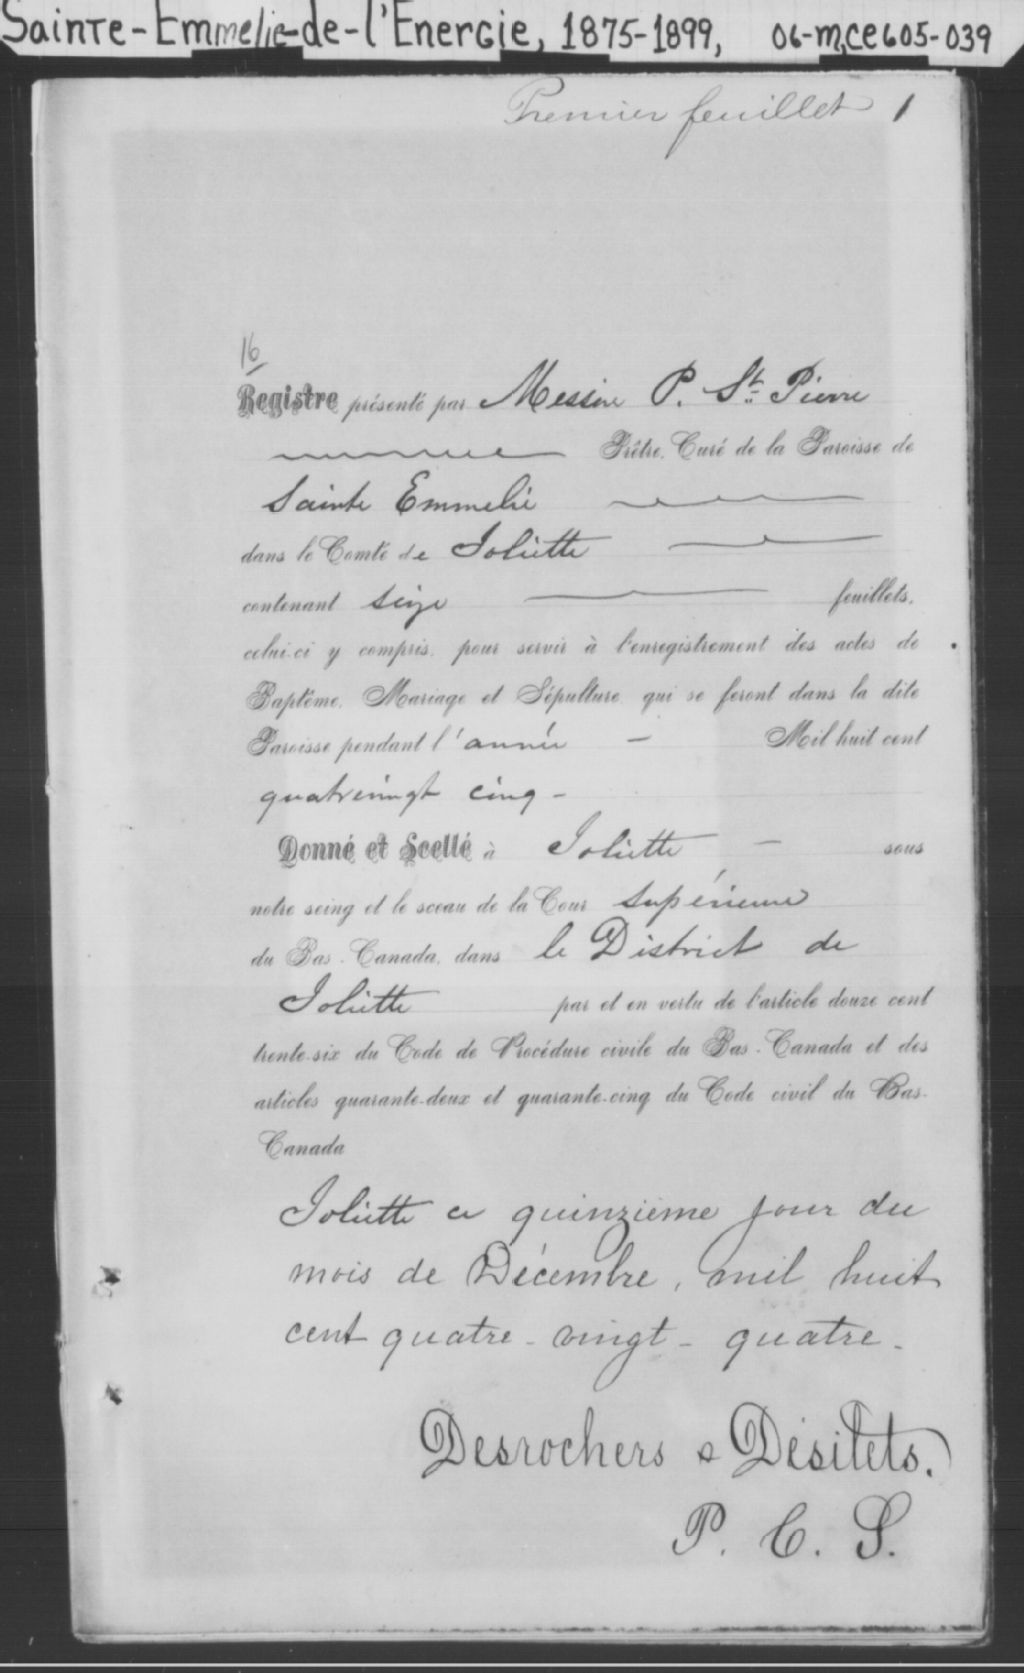 Sainte-Emmelie-de-l'Energie, 1875-1899, 06-M,CE605-039
Premier feuillet 1
16
Registre présenté par Messire P. St. Pierre
Prêtre, Curé de la Paroisse de
Sainte Emmelie
dans le Comté de Joliette
contenant seize feuillets,
celui-ci y compris, pour servir à l'enregistrement des actes de
Baptême, Mariage et Sépulture qui se feront dans la dite
Paroisse pendant l'année – Mil huit cent
quatrevingt cinq –
Donné et Scellé à Joliette – sous
notre seing et le sceau de la Cour Supérieure
du Bas-Canada, dans le District de
Joliette par et en vertu de l'article douze cent
trente-six du Code de Procédure civile du Bas-Canada et des
articles quarante-deux et quarante-cinq du Code civil du Bas-
Canada
Joliette ce quinzième jour du
mois de Décembre, mil huit
cent quatre-vingt-quatre.
Desrochers & Désilets.
P. C. S.